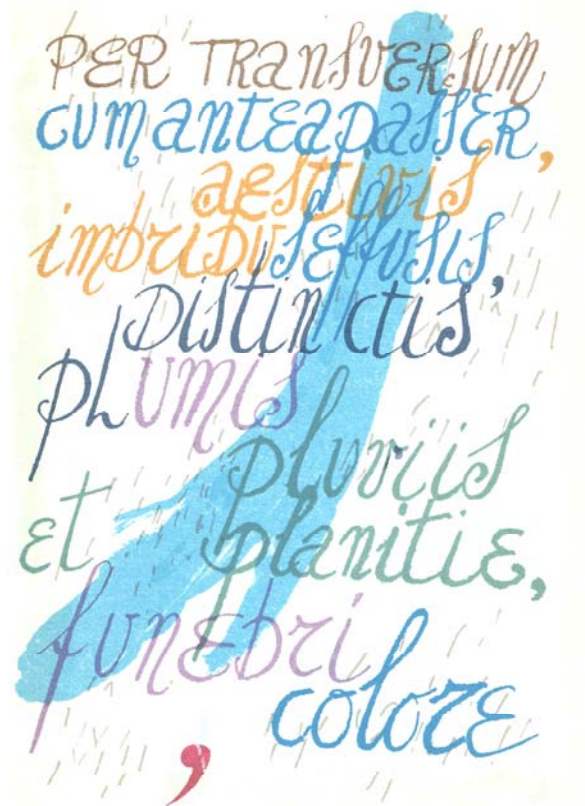 PER TRansVERsum
cum anteapasser,
aestivis
imbribus effusis,
Distin ctis
plumis
pluviis
et planitie,
funebri
colore
,